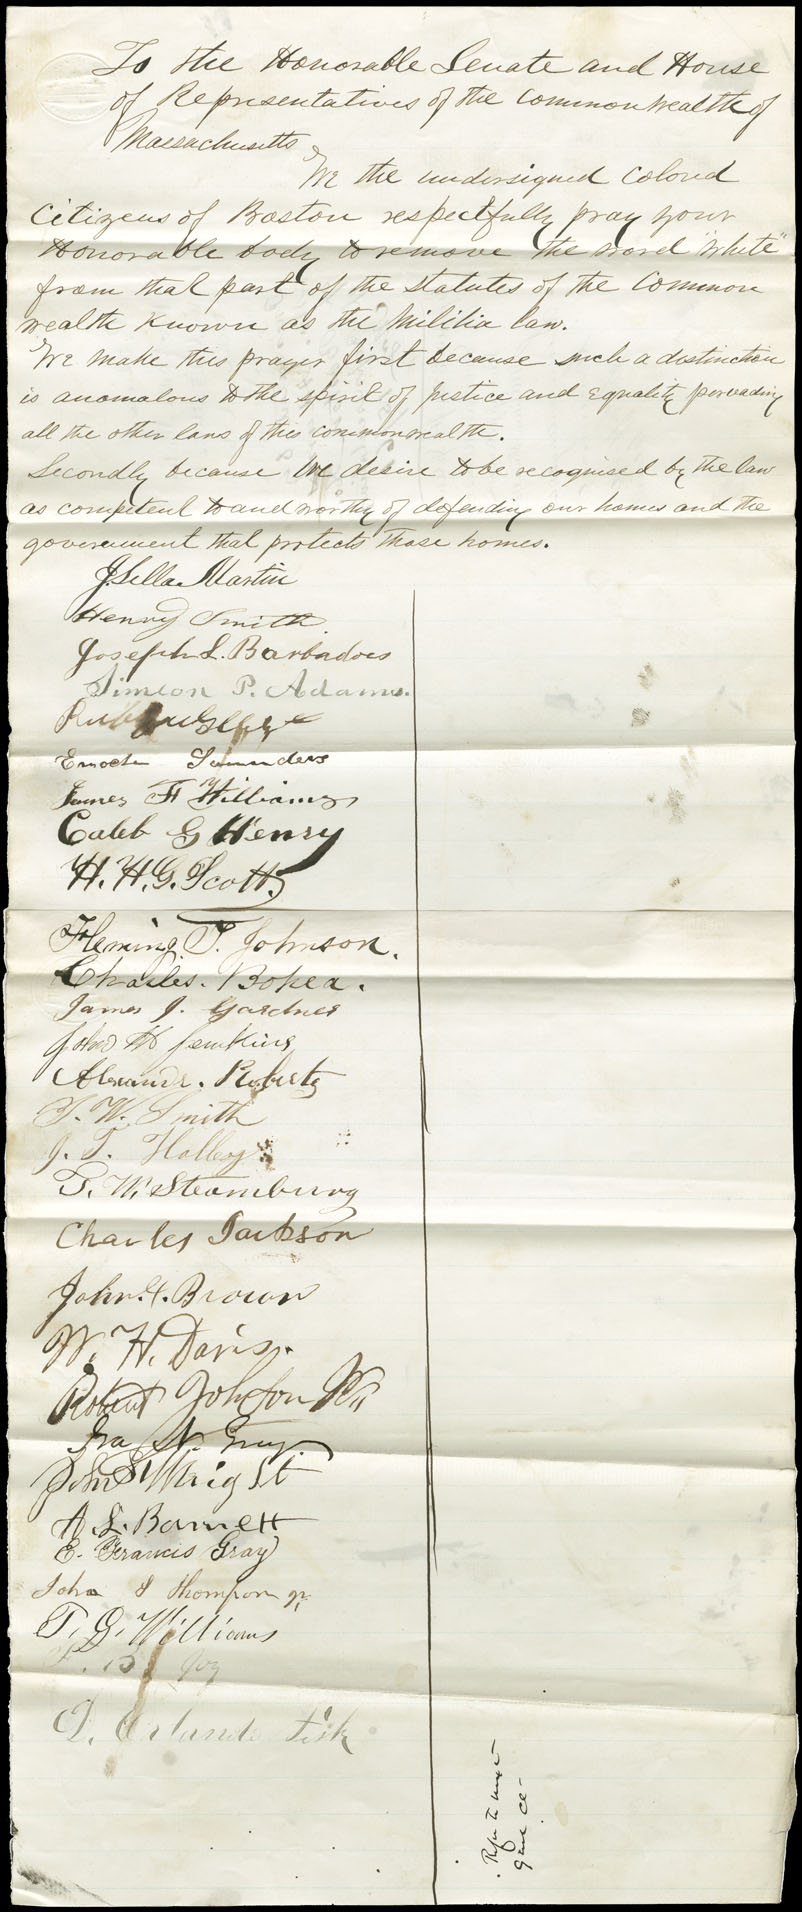 To the Honorable Senate and House
of Representatives of the Commonwealth of
Massachusetts
We the undersigned colored
Citizens of Boston respectfully pray your
Honorable body to remove the word "White"
from that part of the statutes of the Common
wealth known as the Militia law.
We make this prayer first because such a distinction
is anomalous to the spirit of justice and equality pervading
all the other laws of this commonwealth.
Secondly because We desire to be recognised by the law
as competent to and worthy of defending our homes and the
government that protects those homes.
J. Sella Martin
Henry Smith
Joseph L. Barbadoes
Simeon P. Adams.
Enoch Saunders
James F Williams
Caleb G Henry
H. H. G. Scott
Fleming T. Johnson.
Charles. Bokea.
James J. Gardner
John H Jenkins
Alexandr. Roberts
T. W. Smith
J. T. Holley
T. W. Steamburg
Charles Jackson
John H. Brown
W. H. Davis.
Robert Johnson
Ira S. Gray
John S Wright
A. L. Barnett
E. Francis Gray
John J Thompson jr
T. G. Williams
Orlando Fisk